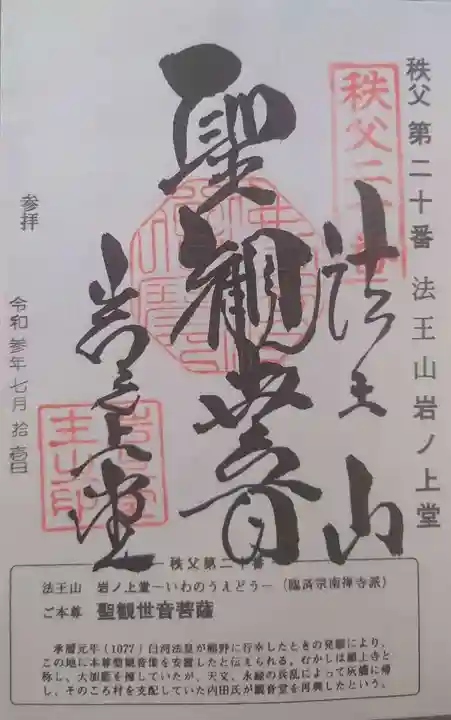 秩父 第二十番 法王山岩ノ上堂
秩父二十番
法王山
聖観世音
岩之上堂
参拝
令和参年七月拾壱日
秩父第二十番
法王山 岩ノ上堂―いわのうえどう―(臨済宗南禅寺派)
ご本尊 聖観世音菩薩
承暦元年(1077)白河法皇が熊野に行幸したときの発願により、
この地に本尊聖観音像を安置したと伝えられる。むかしは願上寺と
称し、大加藍を擁していたが、天文、永録の兵乱によって灰燼に帰
し、そのころ村を支配していた内田氏が観音堂を再興したという。